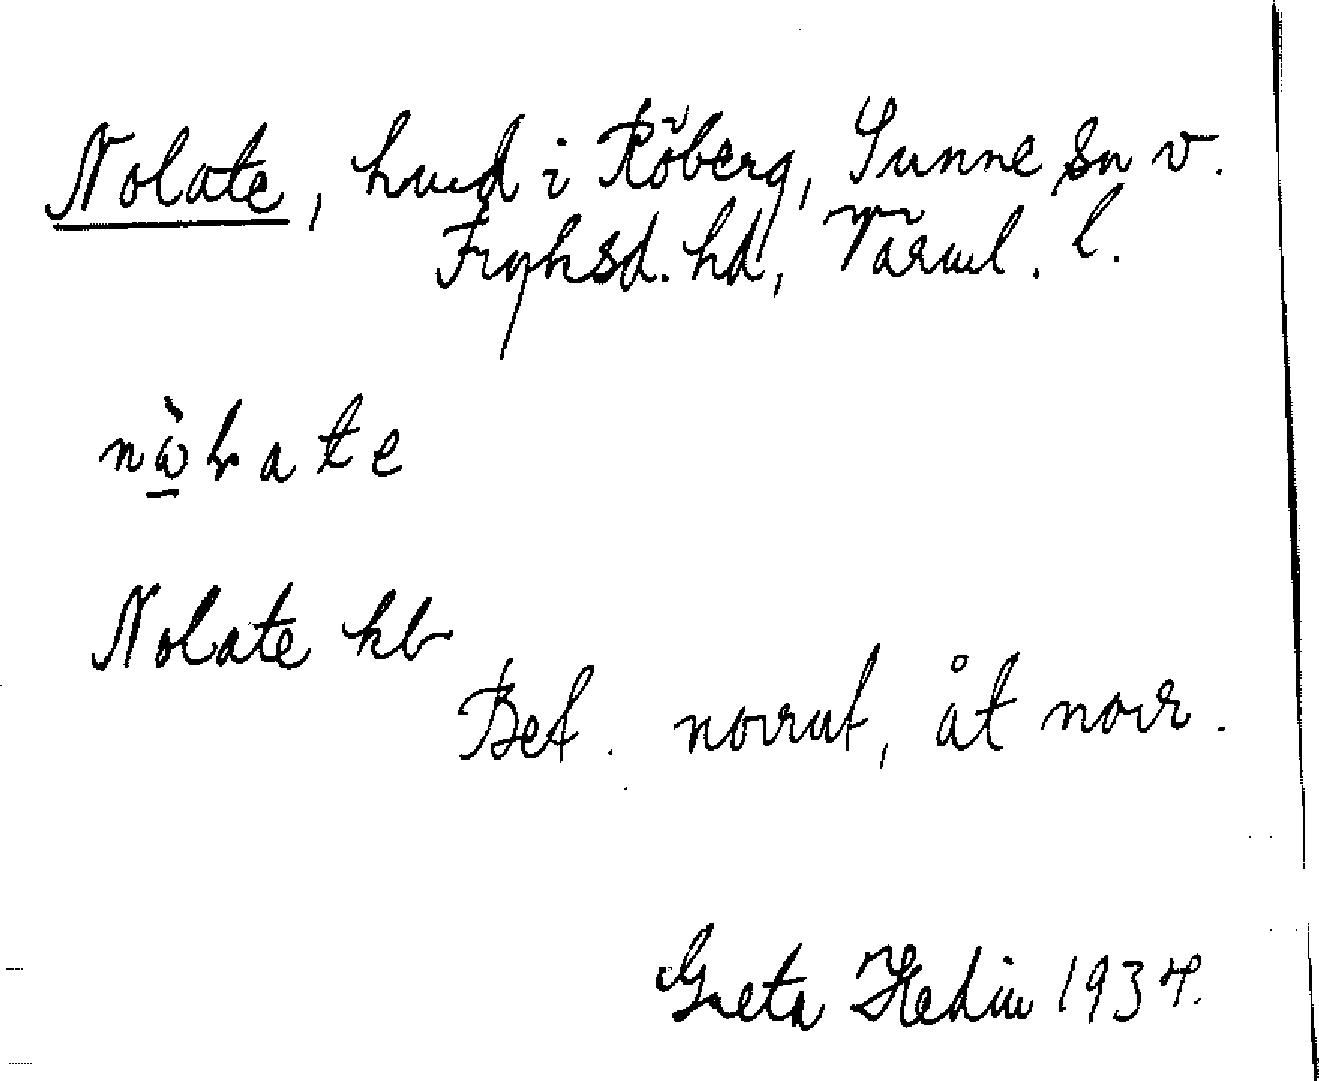 Nolate, hmd i Röberg, Sunne sn v.
Fryksd. hd, Värml. l.
nὼɫate
Nolate kb
Bet. norrut, åt norr.
Greta Hedin 1934.